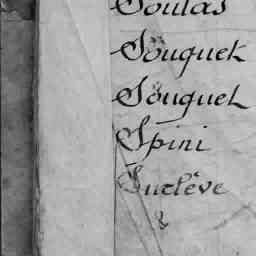 Soulas
Souquet
Souquet
Spini
Surlêve
&